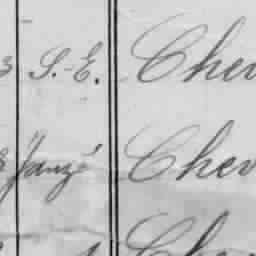 3 S.-E. Chev
Janzé Chev
Che